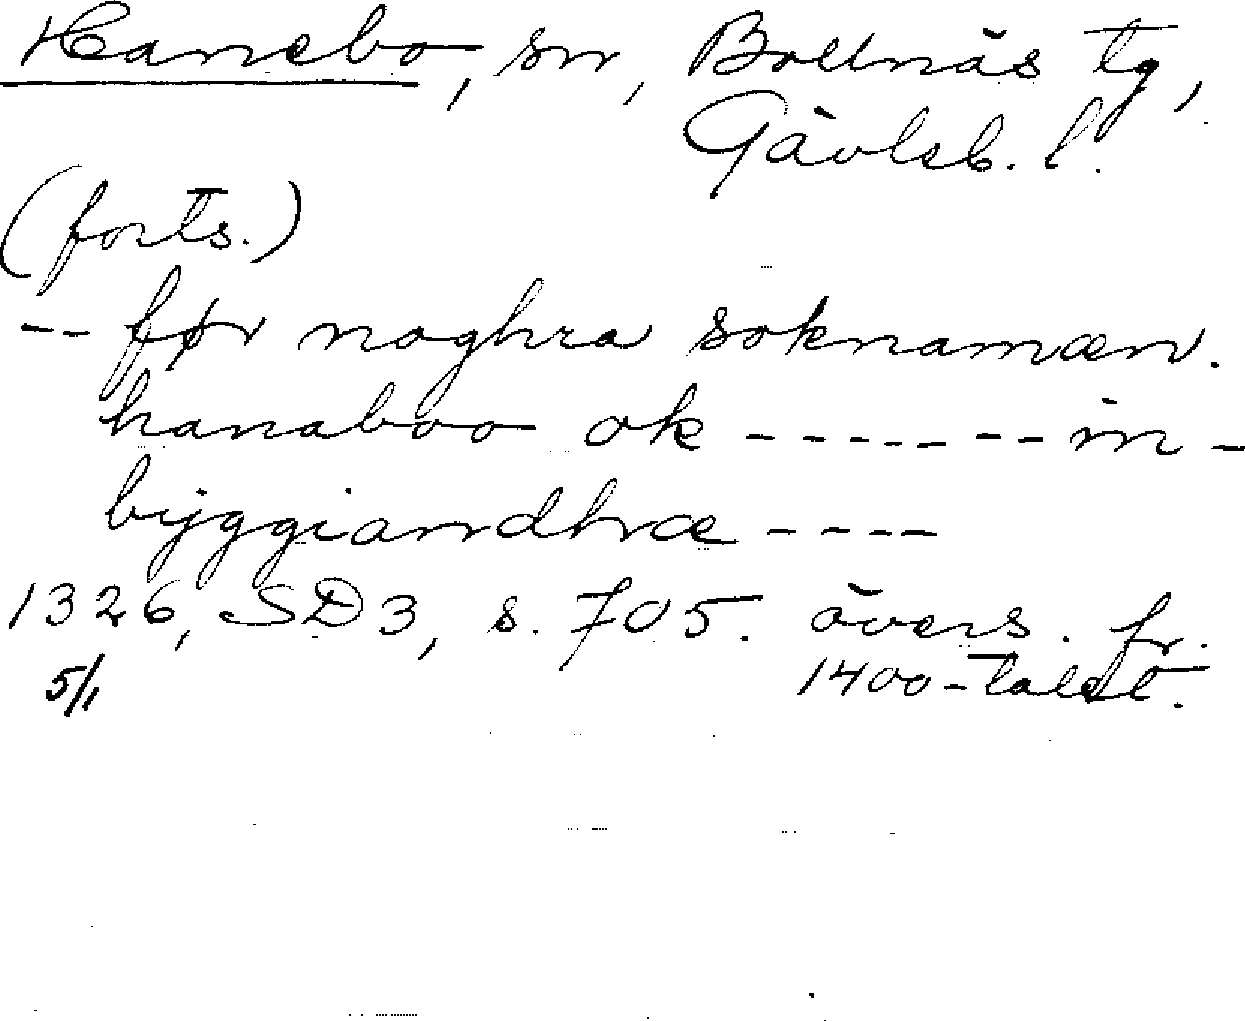 Hanebo, sn, Bollnäs tg,
Gävleb. l.
(forts.)
-- før noghra soknamæn.
hanaboo ok ------- in-
byggiandhræ ----
1326, SD3, s. 705. övers. fr.
5/1 1400-talet.